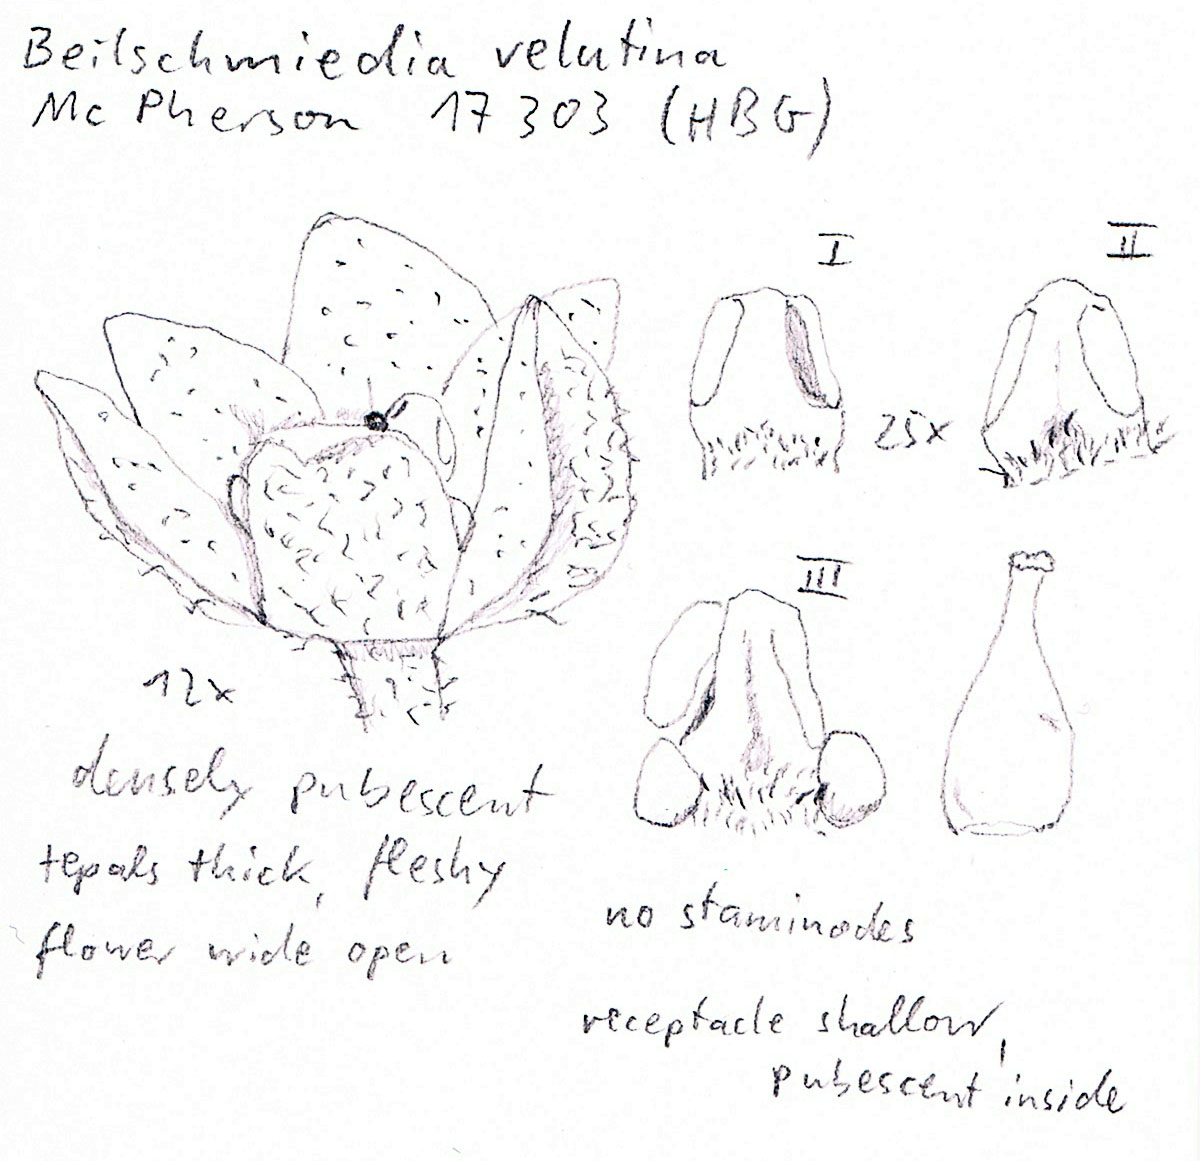 Beilschmiedia velutina
Mc Pherson 17303 (HBG)
I
II
25x
III
12x
densely pubescent
tepals thick, fleshy
flower wide open
no staminodes
receptacle shallow,
pubescent inside